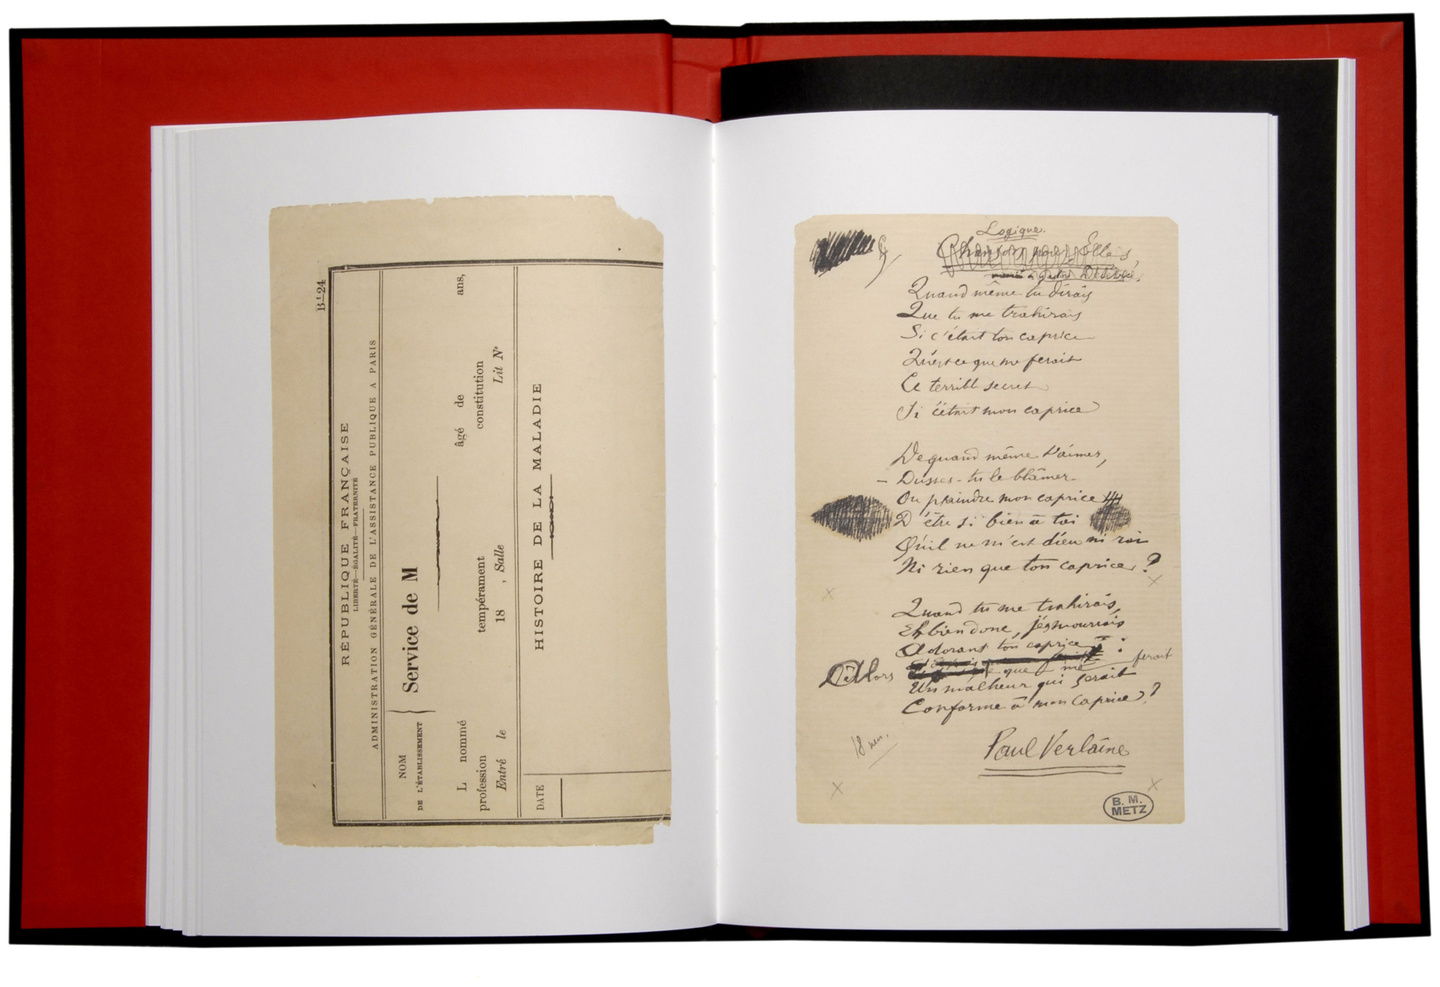 B¹ 24
RÉPUBLIQUE FRANÇAISE
LIBERTÉ—ÉGALITÉ—FRATERNITÉ
ADMINISTRATION GÉNÉRALE DE L'ASSISTANCE PUBLIQUE A PARIS
NOM
DE L'ÉTABLISSEMENT
Service de M
L nommé âgé de ans,
profession tempérament constitution
Entré le 18 , Salle Lit N°
HISTOIRE DE LA MALADIE
DATE
Logique.
Chanson pour Elles,
Quand même tu dirais
Que tu me trahirais
Si c'était ton caprice
Qu'est ce que me ferait
Ce terrible secret
Si c'était mon caprice
De quand même t'aimer,
— Dusses-tu le blâmer
Ou plaindre mon caprice
D'être si bien à toi
Qu'il ne m'est dieu ni roi
Ni rien que ton caprice ?
Quand tu me trahirais,
Eh bien donc, j'en mourrais
Adorant ton caprice :
Alors que me ferait
Un malheur qui serait
Conforme à mon caprice ?
18 nov.
Paul Verlaine
B. M.
METZ